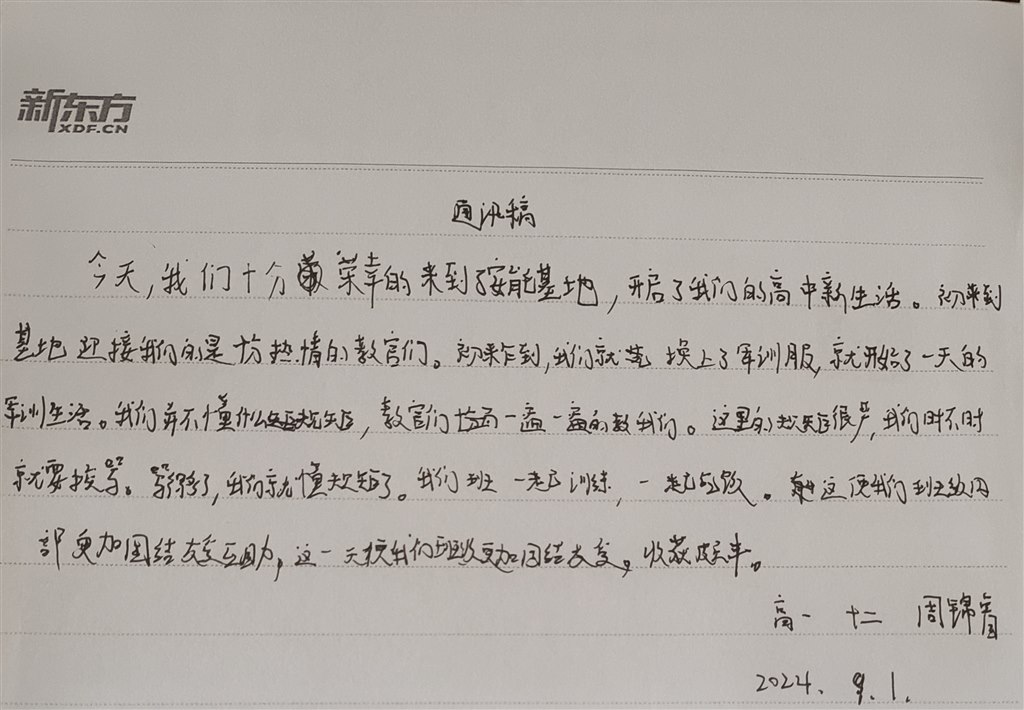 新东方
XDF.CN
通讯稿
今天,我们十分荣幸的来到了安能基地,开启了我们的高中新生活。初来到
基地迎接我们的是十分热情的教官们。初来乍到,我们就换上了军训服,就开始了一天的
军训生活。我们并不懂什么是规矩,教官们一遍一遍的教我们。这里的规矩很严,我们时不时
就要挨罚。我们就懂规矩了。我们班一起训练,一起吃饭。这使我们班级内
部更加团结友爱互助,这一天使我们班级更加团结友爱。收获颇丰。
高一 十二 周锦
2024. 9. 1.